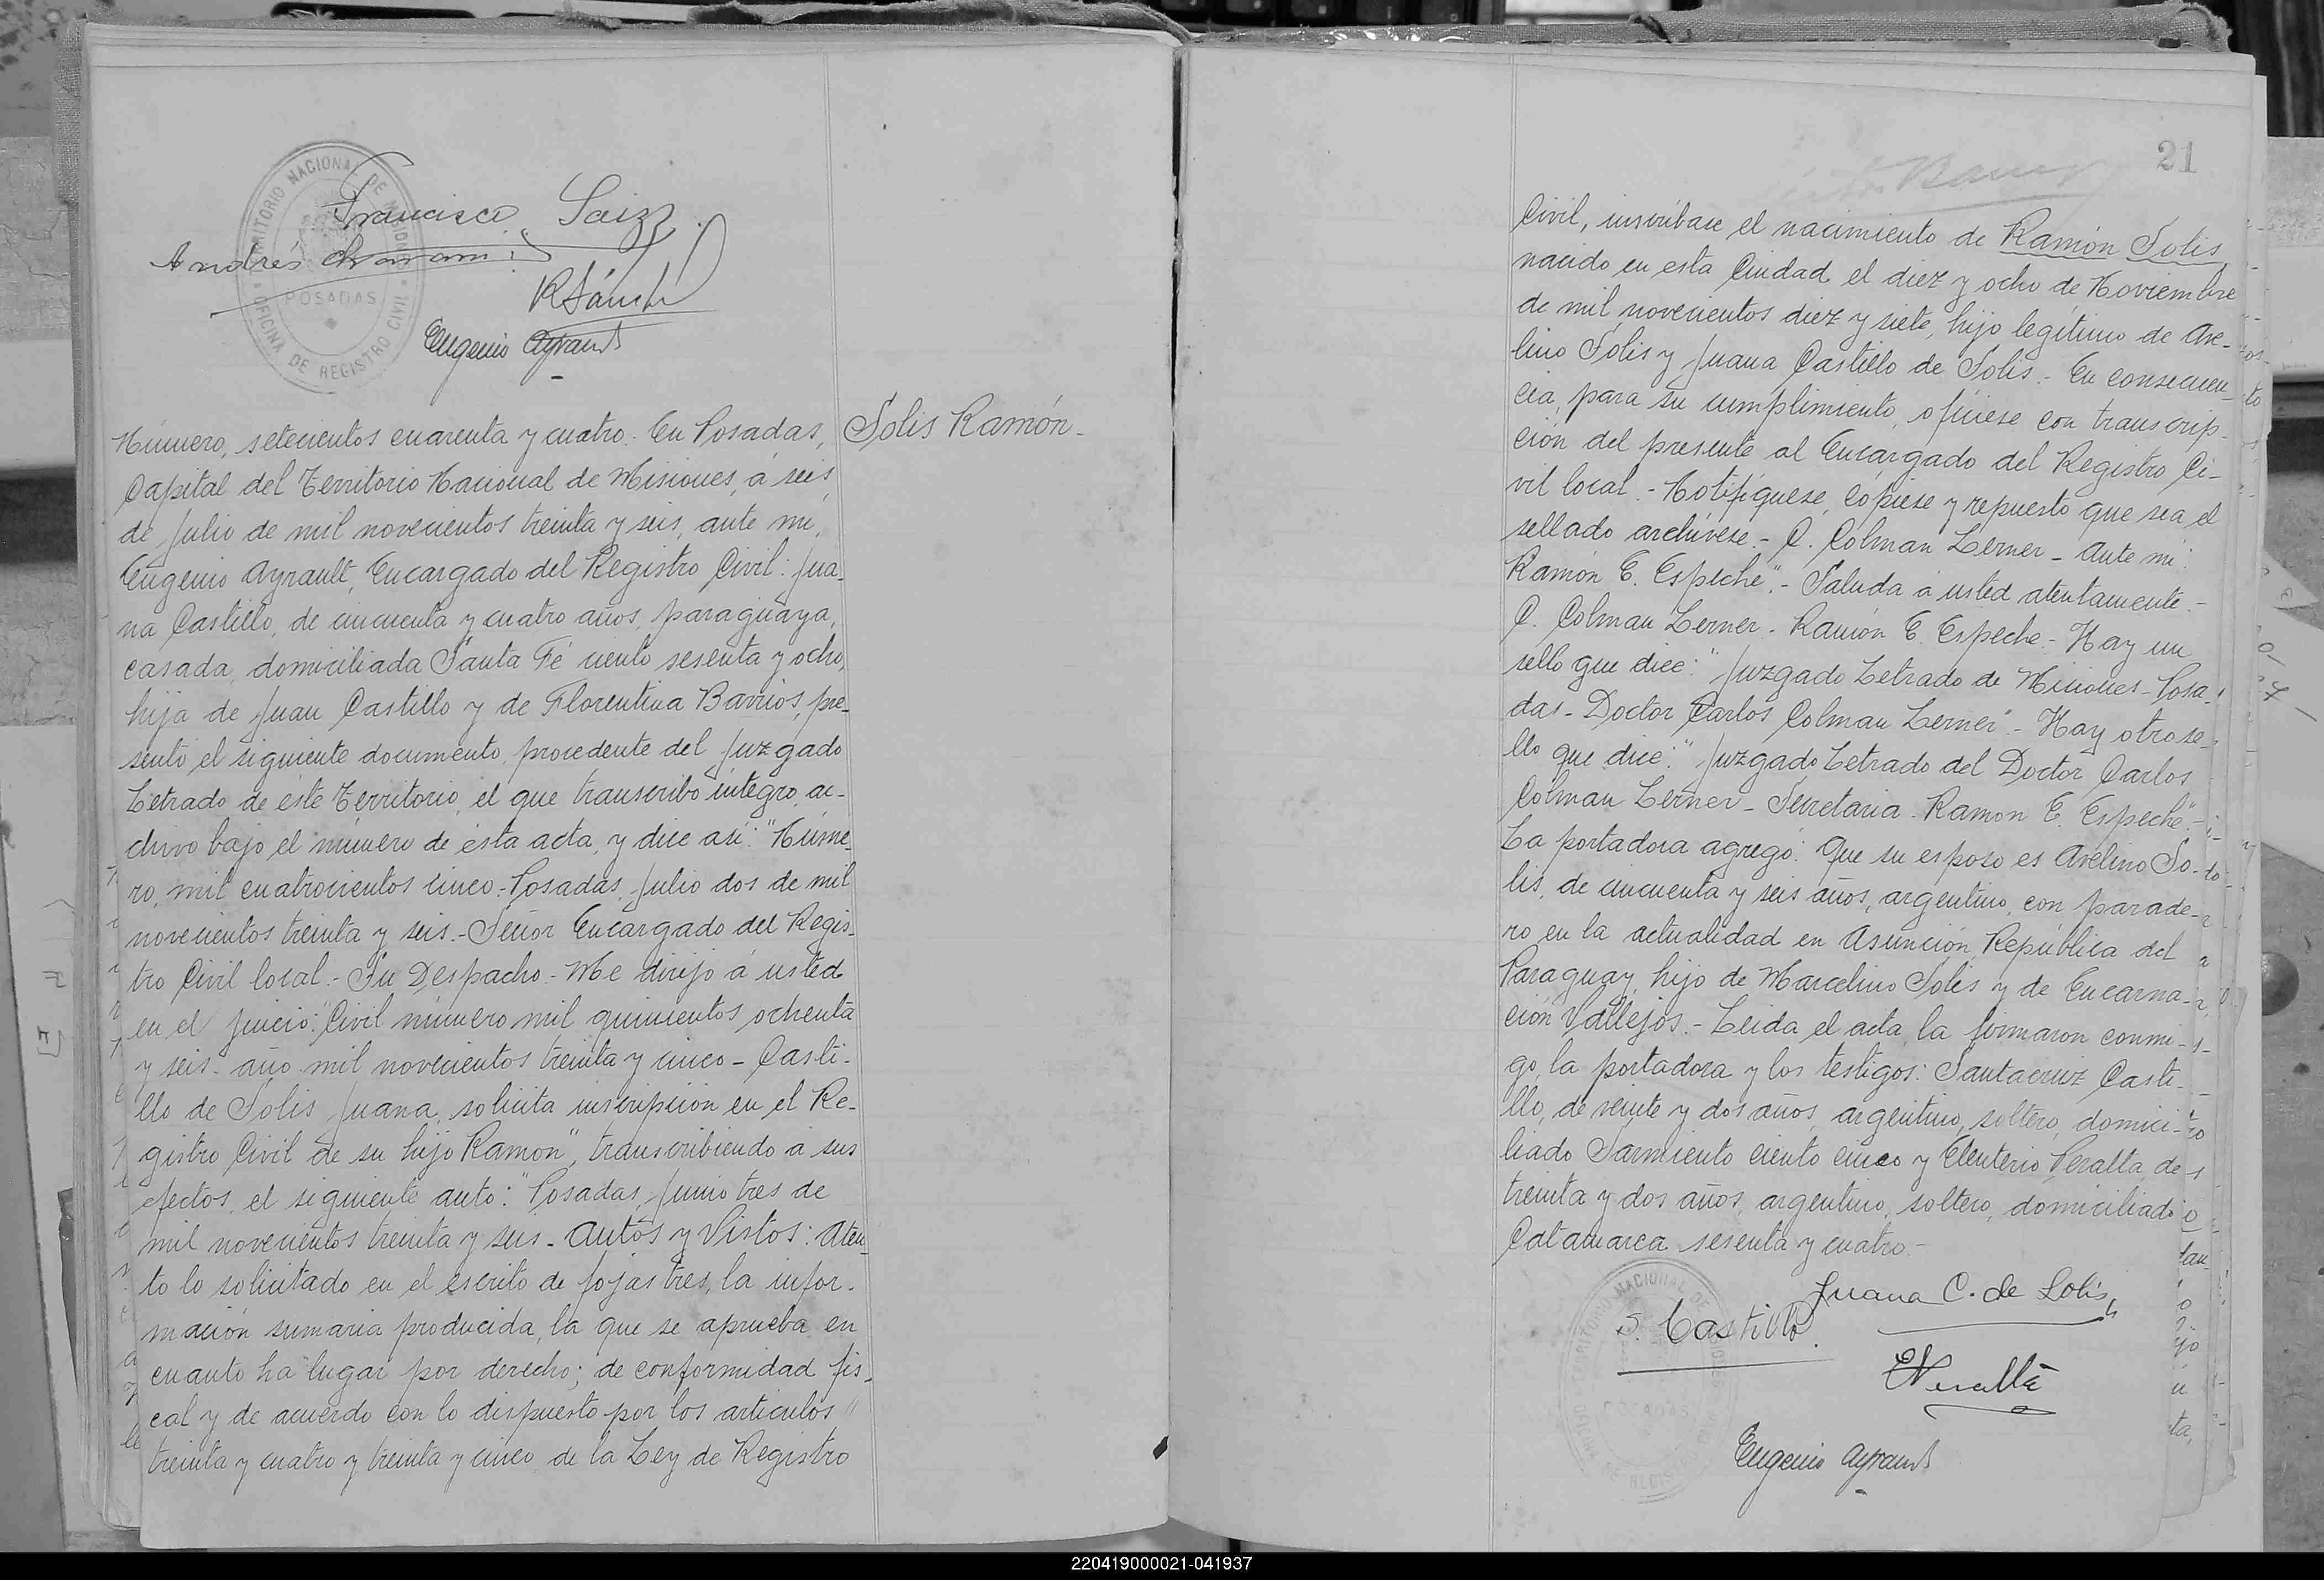 TERRITORIO NACIONAL DE MISIONES
OFICINA DE REGISTRO CIVIL
POSADAS
Francisco Saiz
Andrés
Eugenio Ayrault
Solis Ramón-
Número, setecientos cuarenta y cuatro.- En Posadas,
Capital del Territorio Nacional de Misiones, á seis
de Julio de mil novecientos treinta y seis, ante mi,
Eugenio Ayrault, Encargado del Registro Civil: Jua-
na Castillo, de cincuenta y cuatro años, paraguaya,
casada, domiciliada Santa Fé ciento sesenta y ocho,
hija de Juan Castillo y de Florentina Barrios, pre-
sentó el siguiente documento, procedente del Juzgado
Letrado de éste Territorio, el que transcribo íntegro, ar-
chivo bajo el número de ésta acta, y dice así: "Núme-
ro, mil cuatrocientos cinco.- Posadas, Julio dos de mil
novecientos treinta y seis.- Señor Encargado del Regis-
tro Civil local.- Su Despacho.- Me dirijo á usted
en el juicio: "Civil número mil quinientos ochenta
y seis- año mil novecientos treinta y cinco - Casti-
llo de Solis Juana, solicita inscripción en el Re-
gistro Civil de su hijo Ramon", transcribiendo á sus
efectos, el siguiente auto: "Posadas, Junio tres de
mil novecientos treinta y seis - Autos y Vistos: Aten-
to lo solicitado en el escrito de fojas tres, la infor-
mación sumaria producida, la que se aprueba en
cuanto ha lugar por derecho; de conformidad fis-
cal y de acuerdo con lo dispuesto por los artículos
treinta y cuatro y treinta y cinco de la Ley de Registro
21
Civil, inscríbase el nacimiento de Ramón Solis
nacido en esta Ciudad el diez y ocho de Noviembre
de mil novecientos diez y siete, hijo legítimo de Ave-
lino Solis y Juana Castillo de Solis.- En consecuen-
cia, para su cumplimiento, ofíciese con transcrip-
ción del presente al Encargado del Registro Ci-
vil local.- Notifíquese, cópiese y repuesto que sea el
sellado archívese.- C. Colman Lerner - Ante mí:
Ramón E. Espeche".- Saluda á usted atentamente.-
C. Colman Lerner - Ramón E. Espeche.- Hay un
sello que dice: "Juzgado Letrado de Misiones - Posa-
das - Doctor Carlos Colman Lerner".- Hay otro se-
llo que dice: "Juzgado Letrado del Doctor Carlos
Colman Lerner - Secretaria Ramon E. Espeche".-
La portadora agregó: Que su esposo es Avelino So-
lis, de cincuenta y seis años, argentino, con parade-
ro en la actualidad en Asunción República del
Paraguay, hijo de Marcelino Solis y de Encarna-
ción Vallejos.- Leida el acta, la firmaron conmi-
go, la portadora y los testigos: Santacruz Casti-
llo, de veinte y dos años, argentino, soltero, domici-
liado Sarmiento ciento cinco y Eleuterio Peralta, de
treinta y dos años, argentino, soltero, domiciliado
Catamarca sesenta y cuatro.-
Juana C. de Solis
S. Castillo
E Peralta
Eugenio Ayrault
220419000021-041937